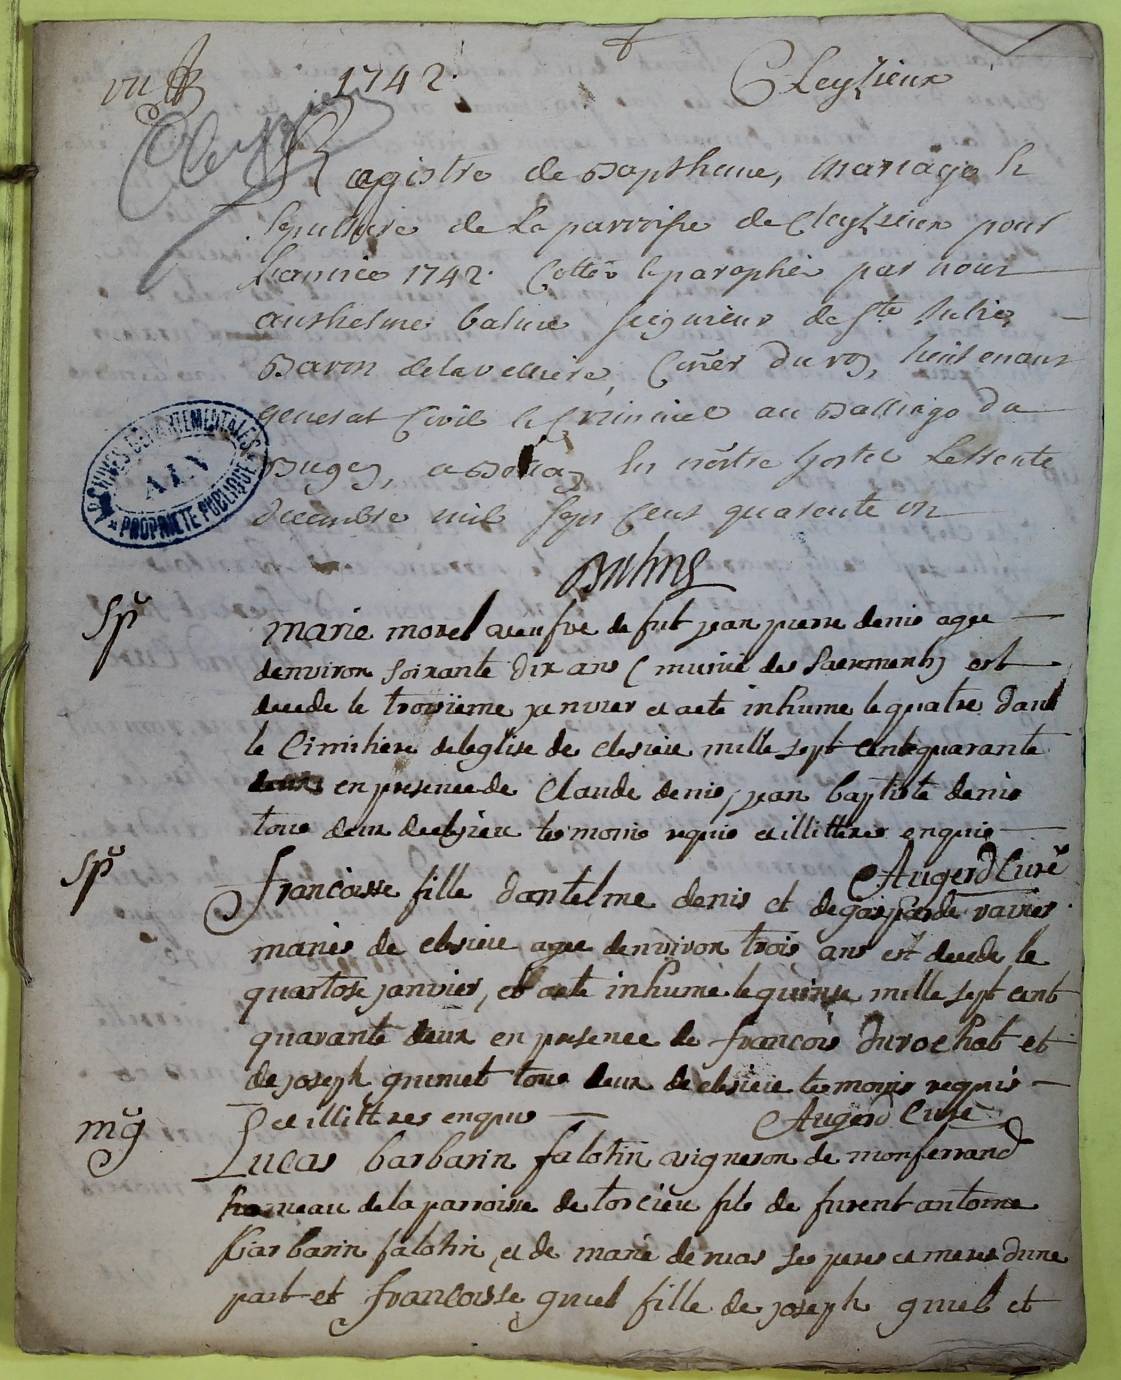 vu
1742.
Cleyzieux
Cleyzieu
Ragistre de Bapthme, Mariage &
sepulture de La parroisse de Cleyzieux pour
Lannée 1742. Cotté & paraphé par nous
anthelme balme seigneur de Ste Julie,
Baron delavelliere, Coner du roy, lieutenant
general Civil & Criminel au Balliage du
Bugey, a Belley en nôtre hostel Le trente
decembre mil sept Cent quarente un
Balme
ARCHIVES DEPARTEMENTALES
AIN
PROPRIETE PUBLIQUE
Sp re
marie morel veufve de fut jean pierre denis agee
denviron soixante dix ans (munie des sacrments) est
decede le troisieme janvier et a ete inhume le quatre dans
le Cimitiere de leglise de clesieu mille sept cent quarante
deux en presence de Claude denis, jean baptiste denis
tous deux declesieu temoins requis et illittres enquis
Augerd Curé
Sp re
francoisse fille dantelme denis et de gasparde
maries de clesieu agee denviron trois ans est decede le
quartose janvier, et a ete inhume le quinse mille sept cent
quarante deux en presence de francois durochat et
de joseph grumet tous deux de clesieu temoins requis
et illittres enquis
Augerd Curé
mg
Lucas barbarin falotin vigneron de monferrand
hameau de la parroisse de torcieu fils de furent antoine
barbarin falotin, et de marie denias ses peres et meres dune
part et francoisse gruel fille de joseph gruel et